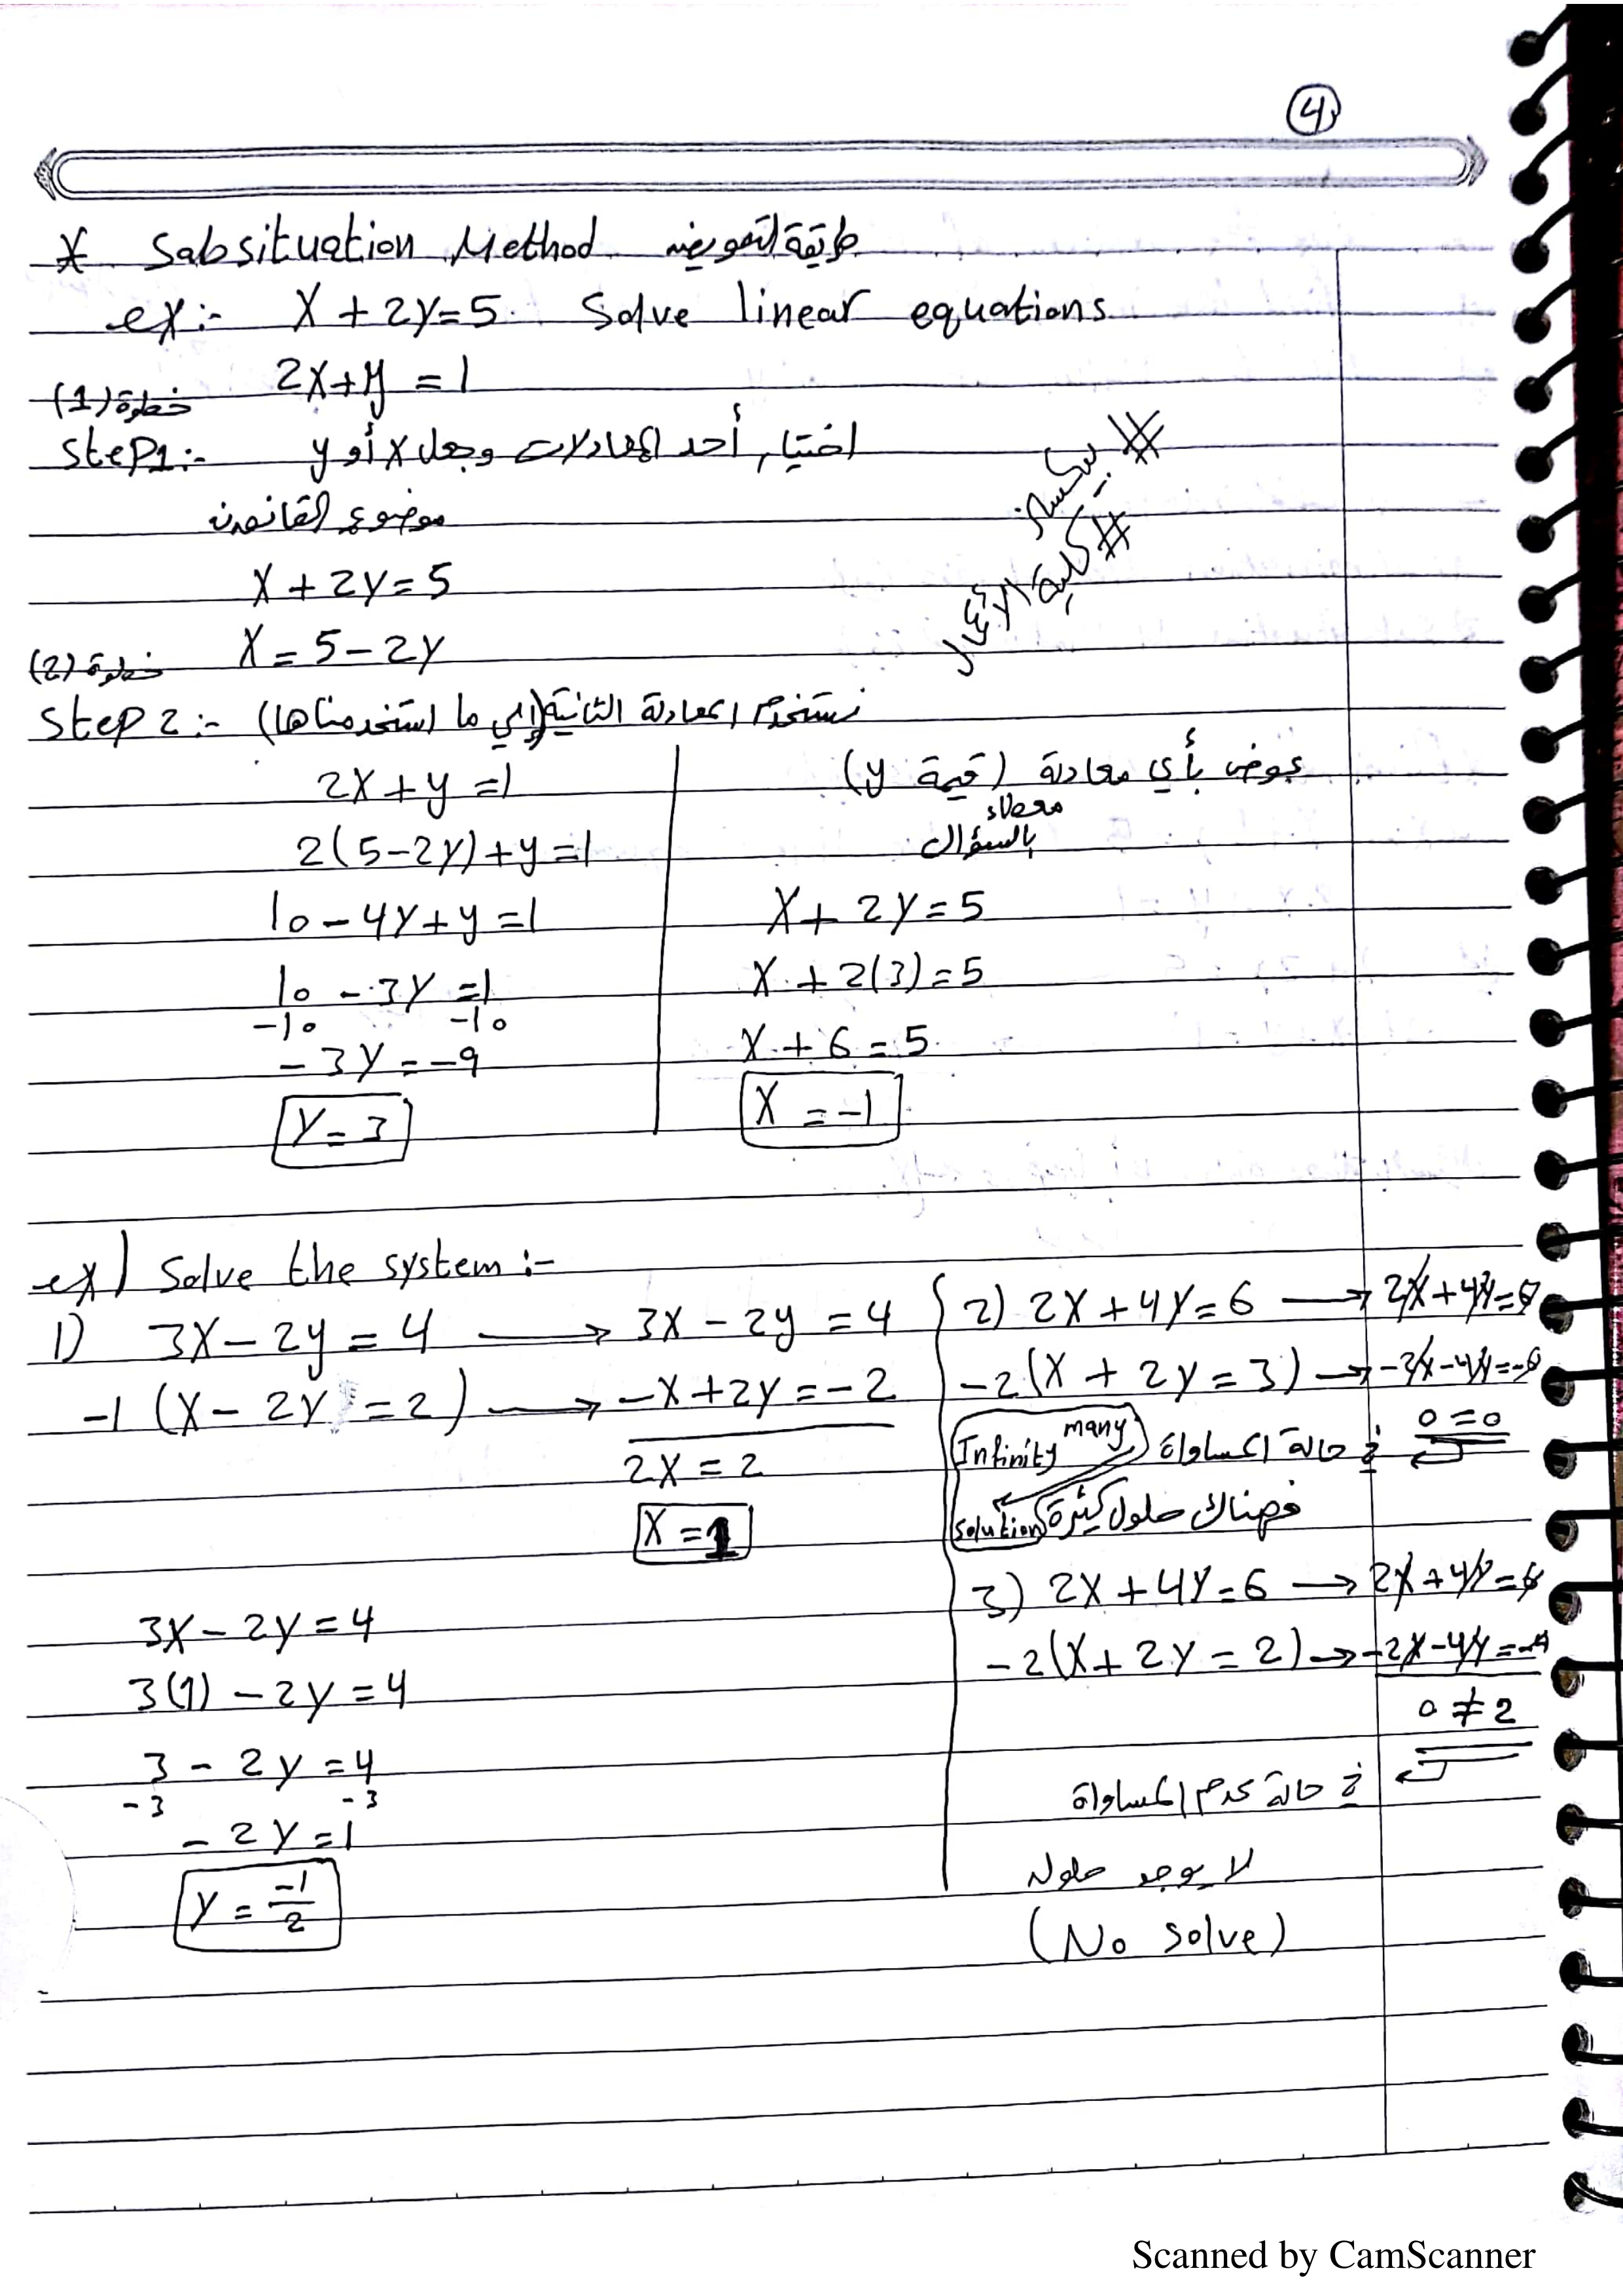 4
* Sabsituation Method طريقة التعويض
ex:- X + 2y = 5 Solve linear equations
2X + y = 1
خطوة (1)
Step1:- اختيار أحد المعادلات وجعل x أو y
موضوع القانون
X + 2y = 5
X = 5 - 2y
خطوة (2)
Step 2:- نستخدم المعادلة الثانية (إلي ما استخدمناها)
2X + y = 1
2(5-2y) + y = 1
10 - 4y + y = 1
10 - 3y = 1
-10 -10
-3y = -9
y = 3
عوض بأي معادلة (قيمة y)
معطاه
بالسؤال
X + 2y = 5
X + 2(3) = 5
X + 6 = 5
X = -1
# بيكساز
# كلية الأعمال
ex) Solve the system:-
1) 3X - 2y = 4 → 3X - 2y = 4
-1 (X - 2y = 2) → -X + 2y = -2
2X = 2
X = 1
3X - 2y = 4
3(1) - 2y = 4
3 - 2y = 4
-3 -3
-2y = 1
y = -1/2
2) 2X + 4y = 6 → 2X + 4y = 6
-2(X + 2y = 3) → -2X - 4y = -6
0 = 0
في حالة المساواة
Infinity many
فهناك حلول كثيرة
solution
3) 2X + 4y = 6 → 2X + 4y = 6
-2(X + 2y = 2) → -2X - 4y = -4
0 ≠ 2
في حالة عدم المساواة
لا يوجد حلول
(No solve)
Scanned by CamScanner